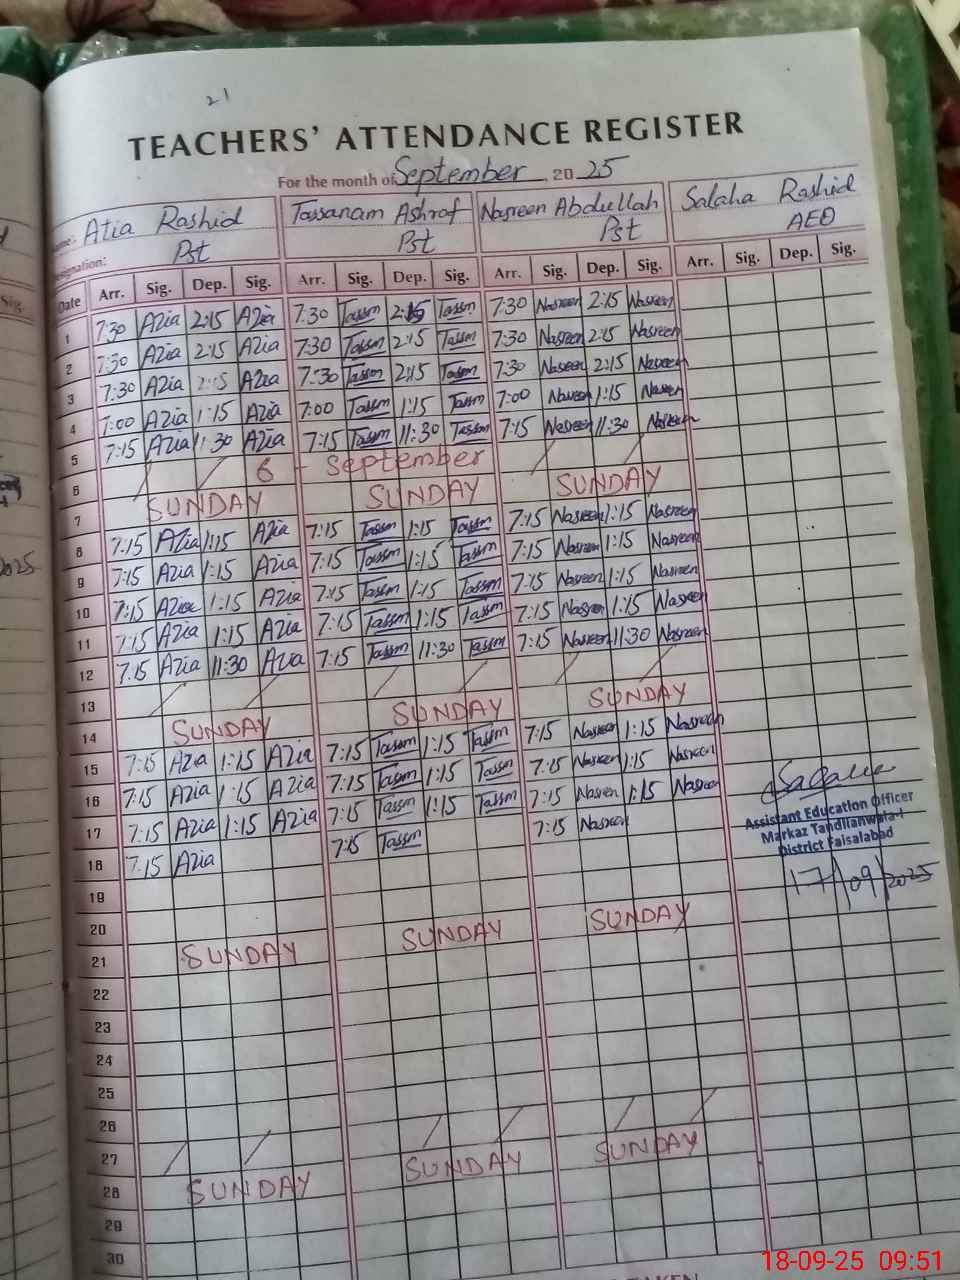 21
TEACHERS' ATTENDANCE REGISTER
For the month of September, 2025
Name:- Atia Rashid Tassanam Ashraf Nasreen Abdullah Salaha Rashid
Designation: Pst Pst Pst AEO
Date Arr. Sig. Dep. Sig. Arr. Sig. Dep. Sig. Arr. Sig. Dep. Sig. Arr. Sig. Dep. Sig.
1 7:30 Azia 2:15 Azia 7:30 Tassm 2:15 Tassm 7:30 Nasreen 2:15 Nasreen
2 7:30 Azia 2:15 Azia 7:30 Tassm 2:15 Tassm 7:30 Nasreen 2:15 Nasreen
3 7:30 Azia 2:15 Azia 7:30 Tassm 2:15 Tassm 7:30 Nasreen 2:15 Nasreen
4 7:00 Azia 1:15 Azia 7:00 Tassm 1:15 Tassm 7:00 Nasreen 1:15 Nasreen
5 7:15 Azia 11:30 Azia 7:15 Tassm 11:30 Tassm 7:15 Nasreen 11:30 Nasreen
6 6 - September
7 SUNDAY SUNDAY SUNDAY
8 7:15 Azia 1:15 Azia 7:15 Tassm 1:15 Tassm 7:15 Nasreen 1:15 Nasreen
9 7:15 Azia 1:15 Azia 7:15 Tassm 1:15 Tassm 7:15 Nasreen 1:15 Nasreen
10 7:15 Azia 1:15 Azia 7:15 Tassm 1:15 Tassm 7:15 Nasreen 1:15 Nasreen
11 7:15 Azia 1:15 Azia 7:15 Tassm 1:15 Tassm 7:15 Nasreen 1:15 Nasreen
12 7:15 Azia 11:30 Azia 7:15 Tassm 11:30 Tassm 7:15 Nasreen 11:30 Nasreen
13
14 SUNDAY SUNDAY SUNDAY
15 7:15 Azia 1:15 Azia 7:15 Tassm 1:15 Tassm 7:15 Nasreen 1:15 Nasreen
16 7:15 Azia 1:15 Azia 7:15 Tassm 1:15 Tassm 7:15 Nasreen 1:15 Nasreen
17 7:15 Azia 1:15 Azia 7:15 Tassm 1:15 Tassm 7:15 Nasreen 1:15 Nasreen
18 7:15 Azia 7:15 Tassm 7:15 Nasreen
Assistant Education Officer
Markaz Tandlianwala-I
District Faisalabad
17/09/2025
19
20
21 SUNDAY SUNDAY SUNDAY
22
23
24
25
26
27
28 SUNDAY SUNDAY SUNDAY
29
30
18-09-25 09:51